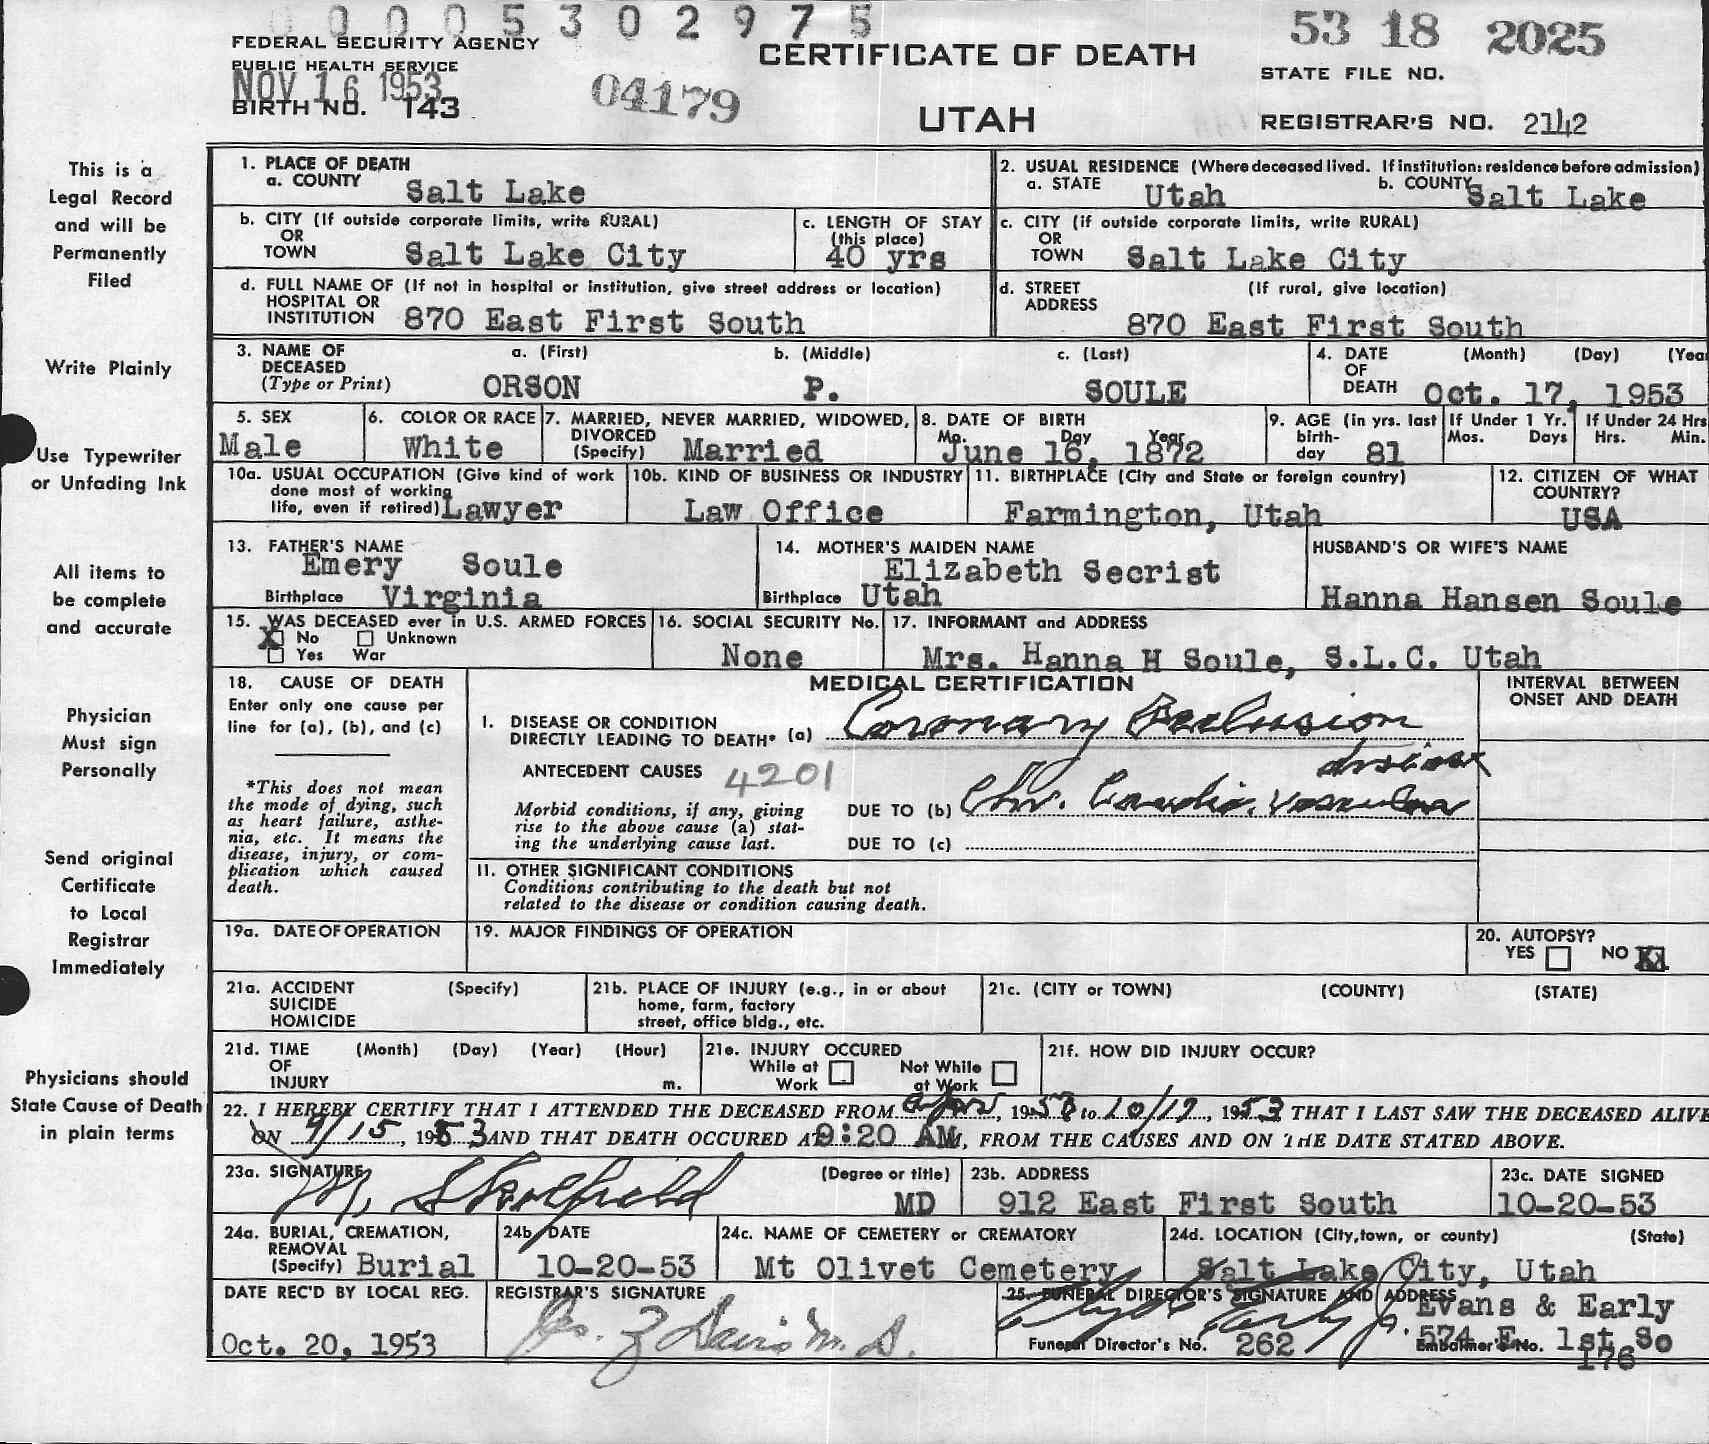 0 0 0 0 5 3 0 2 9 7 5
53 18 2025
FEDERAL SECURITY AGENCY
PUBLIC HEALTH SERVICE
NOV 16 1953
BIRTH NO. 143
04179
CERTIFICATE OF DEATH
UTAH
STATE FILE NO.
REGISTRAR'S NO. 2142
This is a
Legal Record
and will be
Permanently
Filed
Write Plainly
Use Typewriter
or Unfading Ink
All items to
be complete
and accurate
Physician
Must sign
Personally
Send original
Certificate
to Local
Registrar
Immediately
Physicians should
State Cause of Death
in plain terms
1. PLACE OF DEATH
a. COUNTY Salt Lake
2. USUAL RESIDENCE (Where deceased lived. If institution: residence before admission)
a. STATE Utah b. COUNTY Salt Lake
b. CITY (If outside corporate limits, write RURAL)
OR
TOWN Salt Lake City
c. LENGTH OF STAY
(this place)
40 yrs
c. CITY (if outside corporate limits, write RURAL)
OR
TOWN Salt Lake City
d. FULL NAME OF (If not in hospital or institution, give street address or location)
HOSPITAL OR
INSTITUTION 870 East First South
d. STREET (If rural, give location)
ADDRESS
870 East First South
3. NAME OF a. (First) b. (Middle) c. (Last)
DECEASED
(Type or Print) ORSON P. SOULE
4. DATE (Month) (Day) (Yea
OF
DEATH Oct. 17, 1953
5. SEX
Male
6. COLOR OR RACE
White
7. MARRIED, NEVER MARRIED, WIDOWED,
DIVORCED
(Specify) Married
8. DATE OF BIRTH
Mo. Day Year
June 16, 1872
9. AGE (in yrs. last
birth-
day 81
If Under 1 Yr.
Mos. Days
If Under 24 Hrs
Hrs. Min.
10a. USUAL OCCUPATION (Give kind of work
done most of working
life, even if retired) Lawyer
10b. KIND OF BUSINESS OR INDUSTRY
Law Office
11. BIRTHPLACE (City and State or foreign country)
Farmington, Utah
12. CITIZEN OF WHAT
COUNTRY?
USA
13. FATHER'S NAME
Emery Soule
Birthplace Virginia
14. MOTHER'S MAIDEN NAME
Elizabeth Secrist
Birthplace Utah
HUSBAND'S OR WIFE'S NAME
Hanna Hansen Soule
15. WAS DECEASED ever in U.S. ARMED FORCES
X No Unknown
Yes War
16. SOCIAL SECURITY No.
None
17. INFORMANT and ADDRESS
Mrs. Hanna H Soule, S.L.C. Utah
18. CAUSE OF DEATH
Enter only one cause per
line for (a), (b), and (c)
*This does not mean
the mode of dying, such
as heart failure, asthe-
nia, etc. It means the
disease, injury, or com-
plication which caused
death.
MEDICAL CERTIFICATION
INTERVAL BETWEEN
ONSET AND DEATH
I. DISEASE OR CONDITION
DIRECTLY LEADING TO DEATH* (a) Coronary Occlusion
ANTECEDENT CAUSES 4201
disease
Morbid conditions, if any, giving
rise to the above cause (a) stat-
ing the underlying cause last.
DUE TO (b) Chr. Cardio. Vascular
DUE TO (c)
11. OTHER SIGNIFICANT CONDITIONS
Conditions contributing to the death but not
related to the disease or condition causing death.
19a. DATE OF OPERATION
19. MAJOR FINDINGS OF OPERATION
20. AUTOPSY?
YES NO X
21a. ACCIDENT (Specify)
SUICIDE
HOMICIDE
21b. PLACE OF INJURY (e.g., in or about
home, farm, factory
street, office bldg., etc.
21c. (CITY or TOWN) (COUNTY) (STATE)
21d. TIME (Month) (Day) (Year) (Hour)
OF
INJURY m.
21e. INJURY OCCURED
While at Work
Not While at Work
21f. HOW DID INJURY OCCUR?
22. I HEREBY CERTIFY THAT I ATTENDED THE DECEASED FROM , 1953 to 10/17, 1953 THAT I LAST SAW THE DECEASED ALIVE
ON 9/15, 1953 AND THAT DEATH OCCURED AT 9:20 AM, FROM THE CAUSES AND ON THE DATE STATED ABOVE.
23a. SIGNATURE (Degree or title)
MD
23b. ADDRESS
912 East First South
23c. DATE SIGNED
10-20-53
24a. BURIAL, CREMATION,
REMOVAL
(Specify) Burial
24b. DATE
10-20-53
24c. NAME OF CEMETERY or CREMATORY
Mt Olivet Cemetery
24d. LOCATION (City, town, or county) (State)
Salt Lake City, Utah
DATE REC'D BY LOCAL REG.
Oct. 20, 1953
REGISTRAR'S SIGNATURE
Davis M. D.
25. FUNERAL DIRECTOR'S SIGNATURE AND ADDRESS
Evans & Early
574 E. 1st So
Funeral Director's No. 262
Embalmer's No. 176